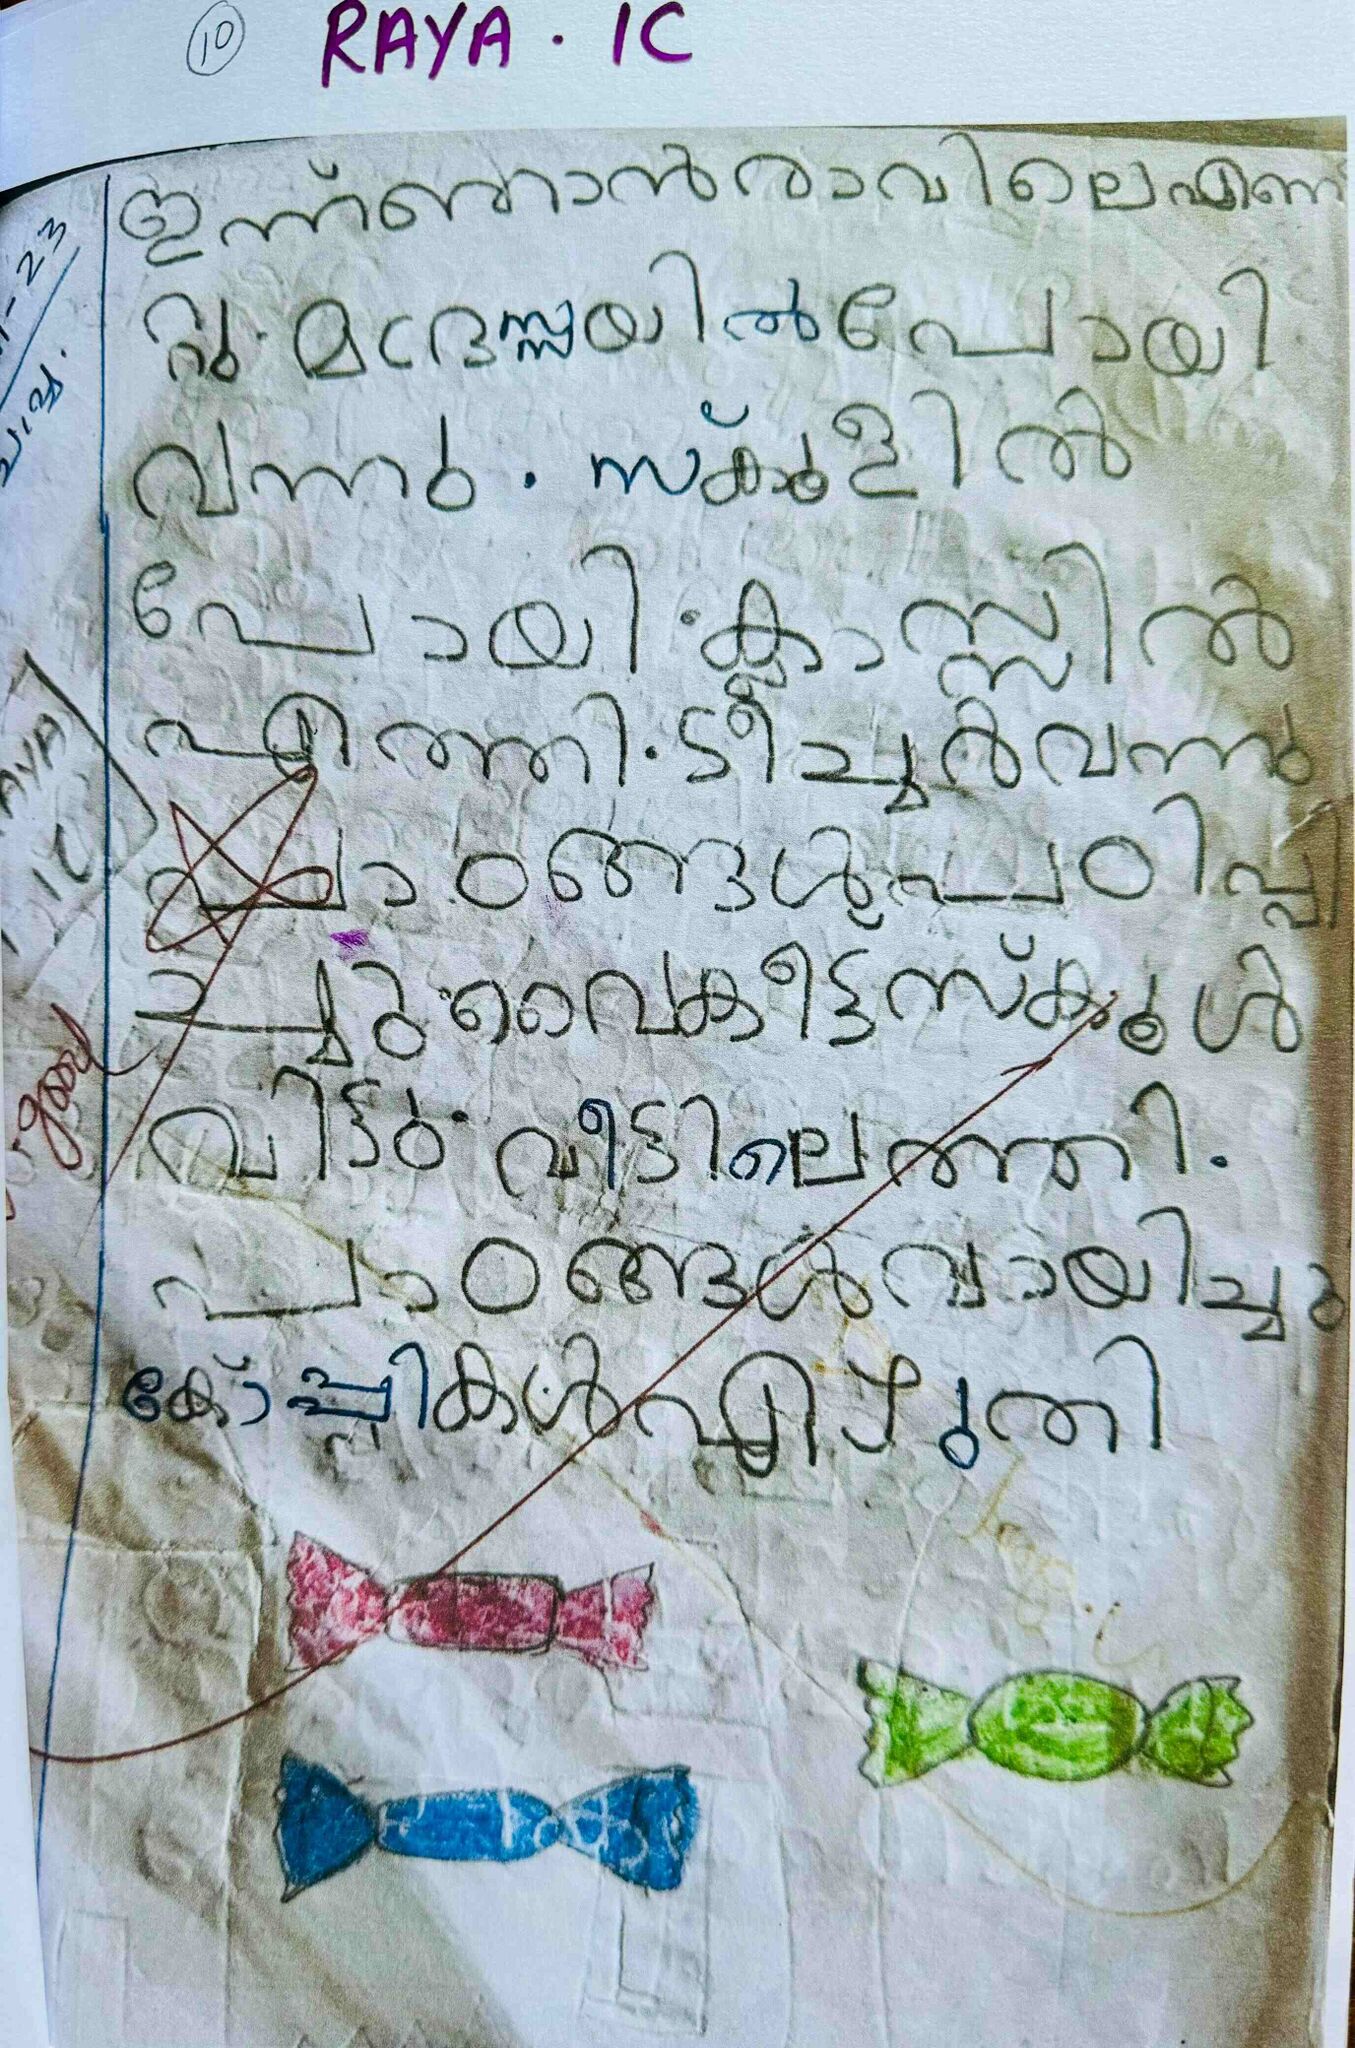 10 RAYA . 1C
ഇന്ന് ഞാൻ രാവിലെ എണീ
റ്റു. മദ്രസ്സയിൽ പോയി
വന്നു. സ്കൂളിൽ
പോയി. ക്ലാസ്സിൽ
എത്തി. ടീച്ചർ വന്നു
പാഠങ്ങൾ പഠിപ്പി
ച്ചു. വൈകീട്ട് സ്കൂൾ
വിട്ടു. വീട്ടിലെത്തി.
പാഠങ്ങൾ വായിച്ചു
കോപ്പികൾ എഴുതി
-23
RAYA
1C
good